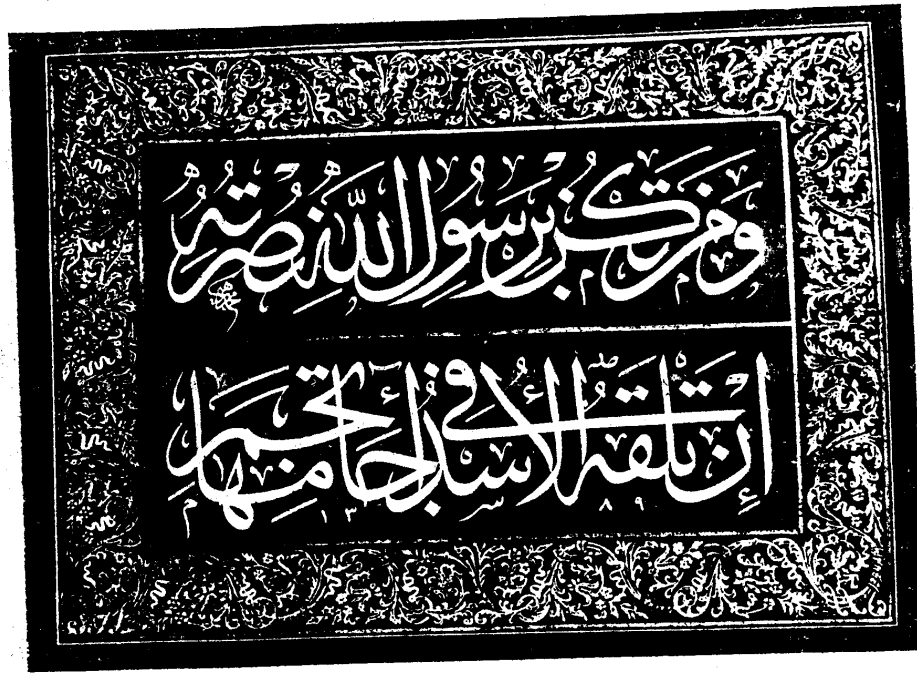 وَمَن تَكُن بِرَسُولِ اللّٰهِ نُصْرَتُهُ
إِن تَلْقَهُ الأُسْدُ فِي آجَامِهَا تَجِمِ